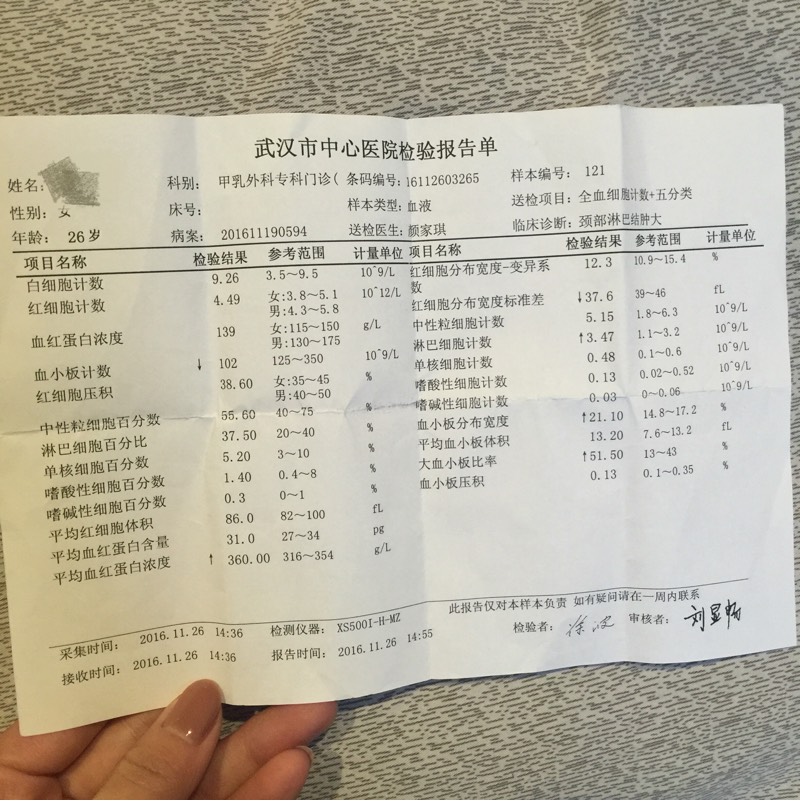 武汉市中心医院检验报告单
姓名:
科别: 甲乳外科专科门诊( 条码编号:16112603265 样本编号: 121
性别: 女 床号: 样本类型:血液 送检项目: 全血细胞计数+五分类
年龄: 26岁 病案: 201611190594 送检医生:颜家琪 临床诊断: 颈部淋巴结肿大
项目名称 检验结果 参考范围 计量单位 项目名称 检验结果 参考范围 计量单位
白细胞计数 9.26 3.5~9.5 10^9/L
红细胞计数 4.49 女:3.8~5.1 10^12/L
男:4.3~5.8
血红蛋白浓度 139 女:115~150 g/L
男:130~175
血小板计数 ↓ 102 125~350 10^9/L
红细胞压积 38.60 女:35~45 %
男:40~50
中性粒细胞百分数 55.60 40~75 %
淋巴细胞百分比 37.50 20~40 %
单核细胞百分数 5.20 3~10 %
嗜酸性细胞百分数 1.40 0.4~8 %
嗜碱性细胞百分数 0.3 0~1 %
平均红细胞体积 86.0 82~100 fL
平均血红蛋白含量 31.0 27~34 pg
平均血红蛋白浓度 ↑ 360.00 316~354 g/L
红细胞分布宽度-变异系数 12.3 10.9~15.4 %
红细胞分布宽度标准差 ↓37.6 39~46 fL
中性粒细胞计数 5.15 1.8~6.3 10^9/L
淋巴细胞计数 ↑3.47 1.1~3.2 10^9/L
单核细胞计数 0.48 0.1~0.6 10^9/L
嗜酸性细胞计数 0.13 0.02~0.52 10^9/L
嗜碱性细胞计数 0.03 0~0.06 10^9/L
血小板分布宽度 ↑21.10 14.8~17.2 %
平均血小板体积 13.20 7.6~13.2 fL
大血小板比率 ↑51.50 13~43 %
血小板压积 0.13 0.1~0.35 %
此报告仅对本样本负责 如有疑问请在一周内联系
采集时间: 2016.11.26 14:36 检测仪器: XS500I-H-MZ 检验者: 审核者: 刘显畅
接收时间: 2016.11.26 14:36 报告时间: 2016.11.26 14:55